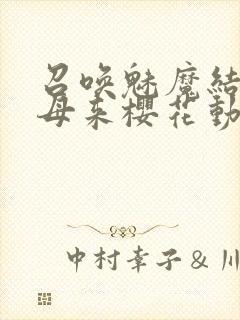 召唤魅魔结
母来樱花動
中村幸子&川